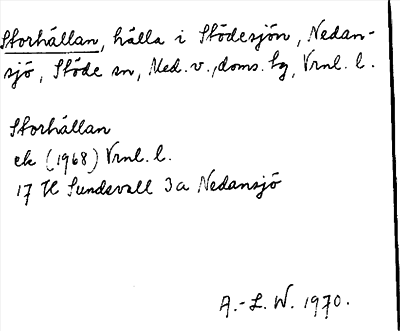 Storhällan, hälla i Stödesjön, Nedan-
sjö, Stöde sn, Med. v., doms. tg, Vrnl. l.
Storhällan
ek (1968) Vrnl. l.
17 H Sundsvall 3a Nedansjö
A.-L. W. 1970.